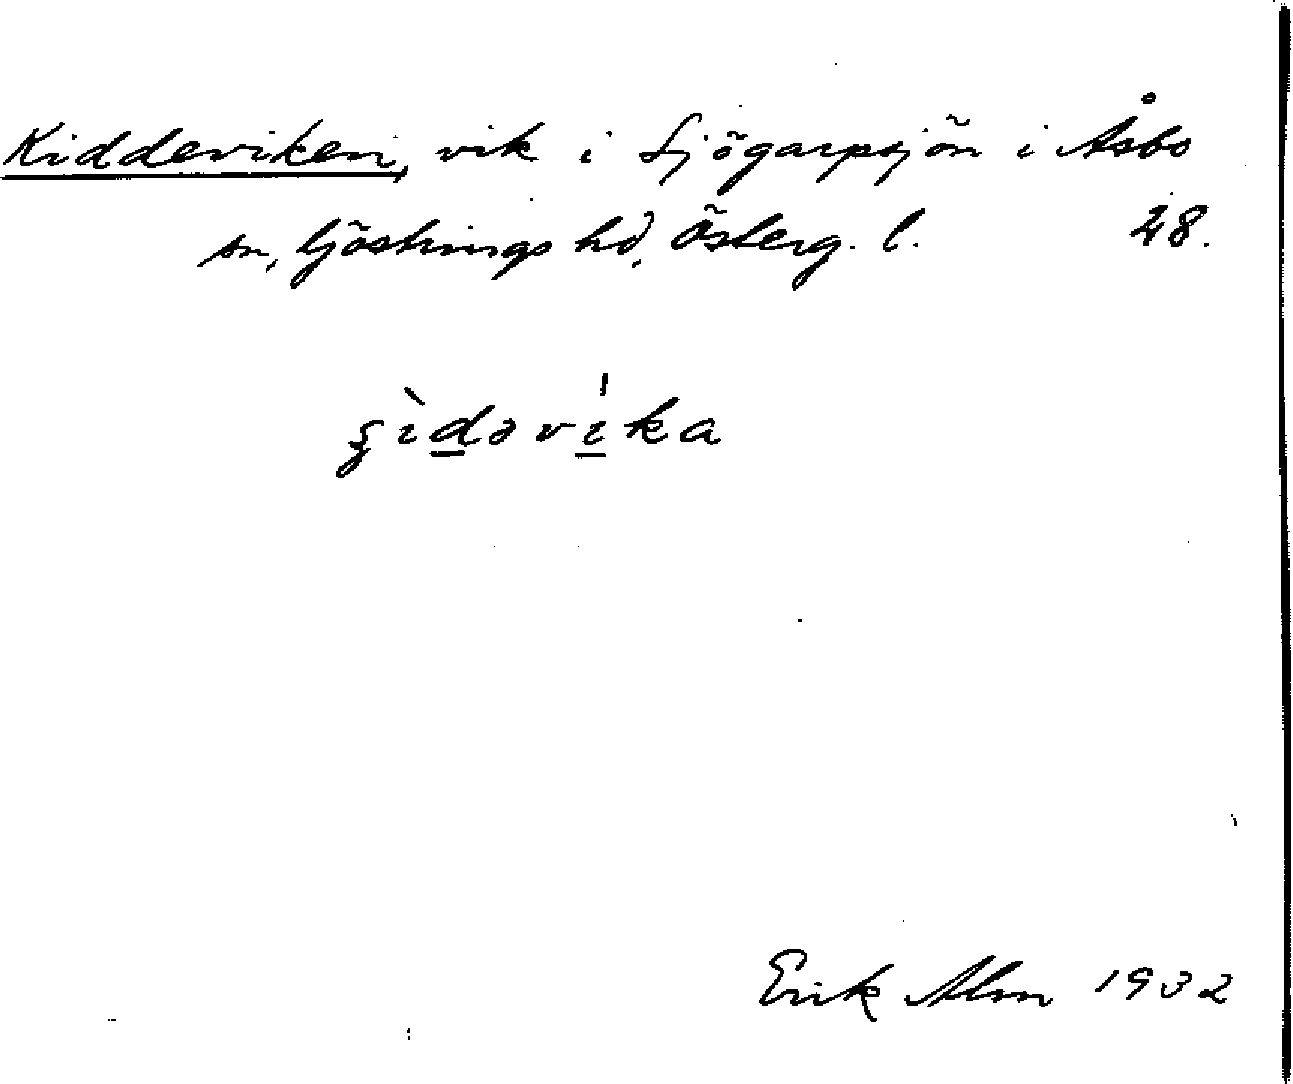 Kiddeviken, vik i Sjögarpsjön i Åsbo
sn, Göstrings hd, Österg. l. 28.
ɕìdəvíka
Erik Alm 1932